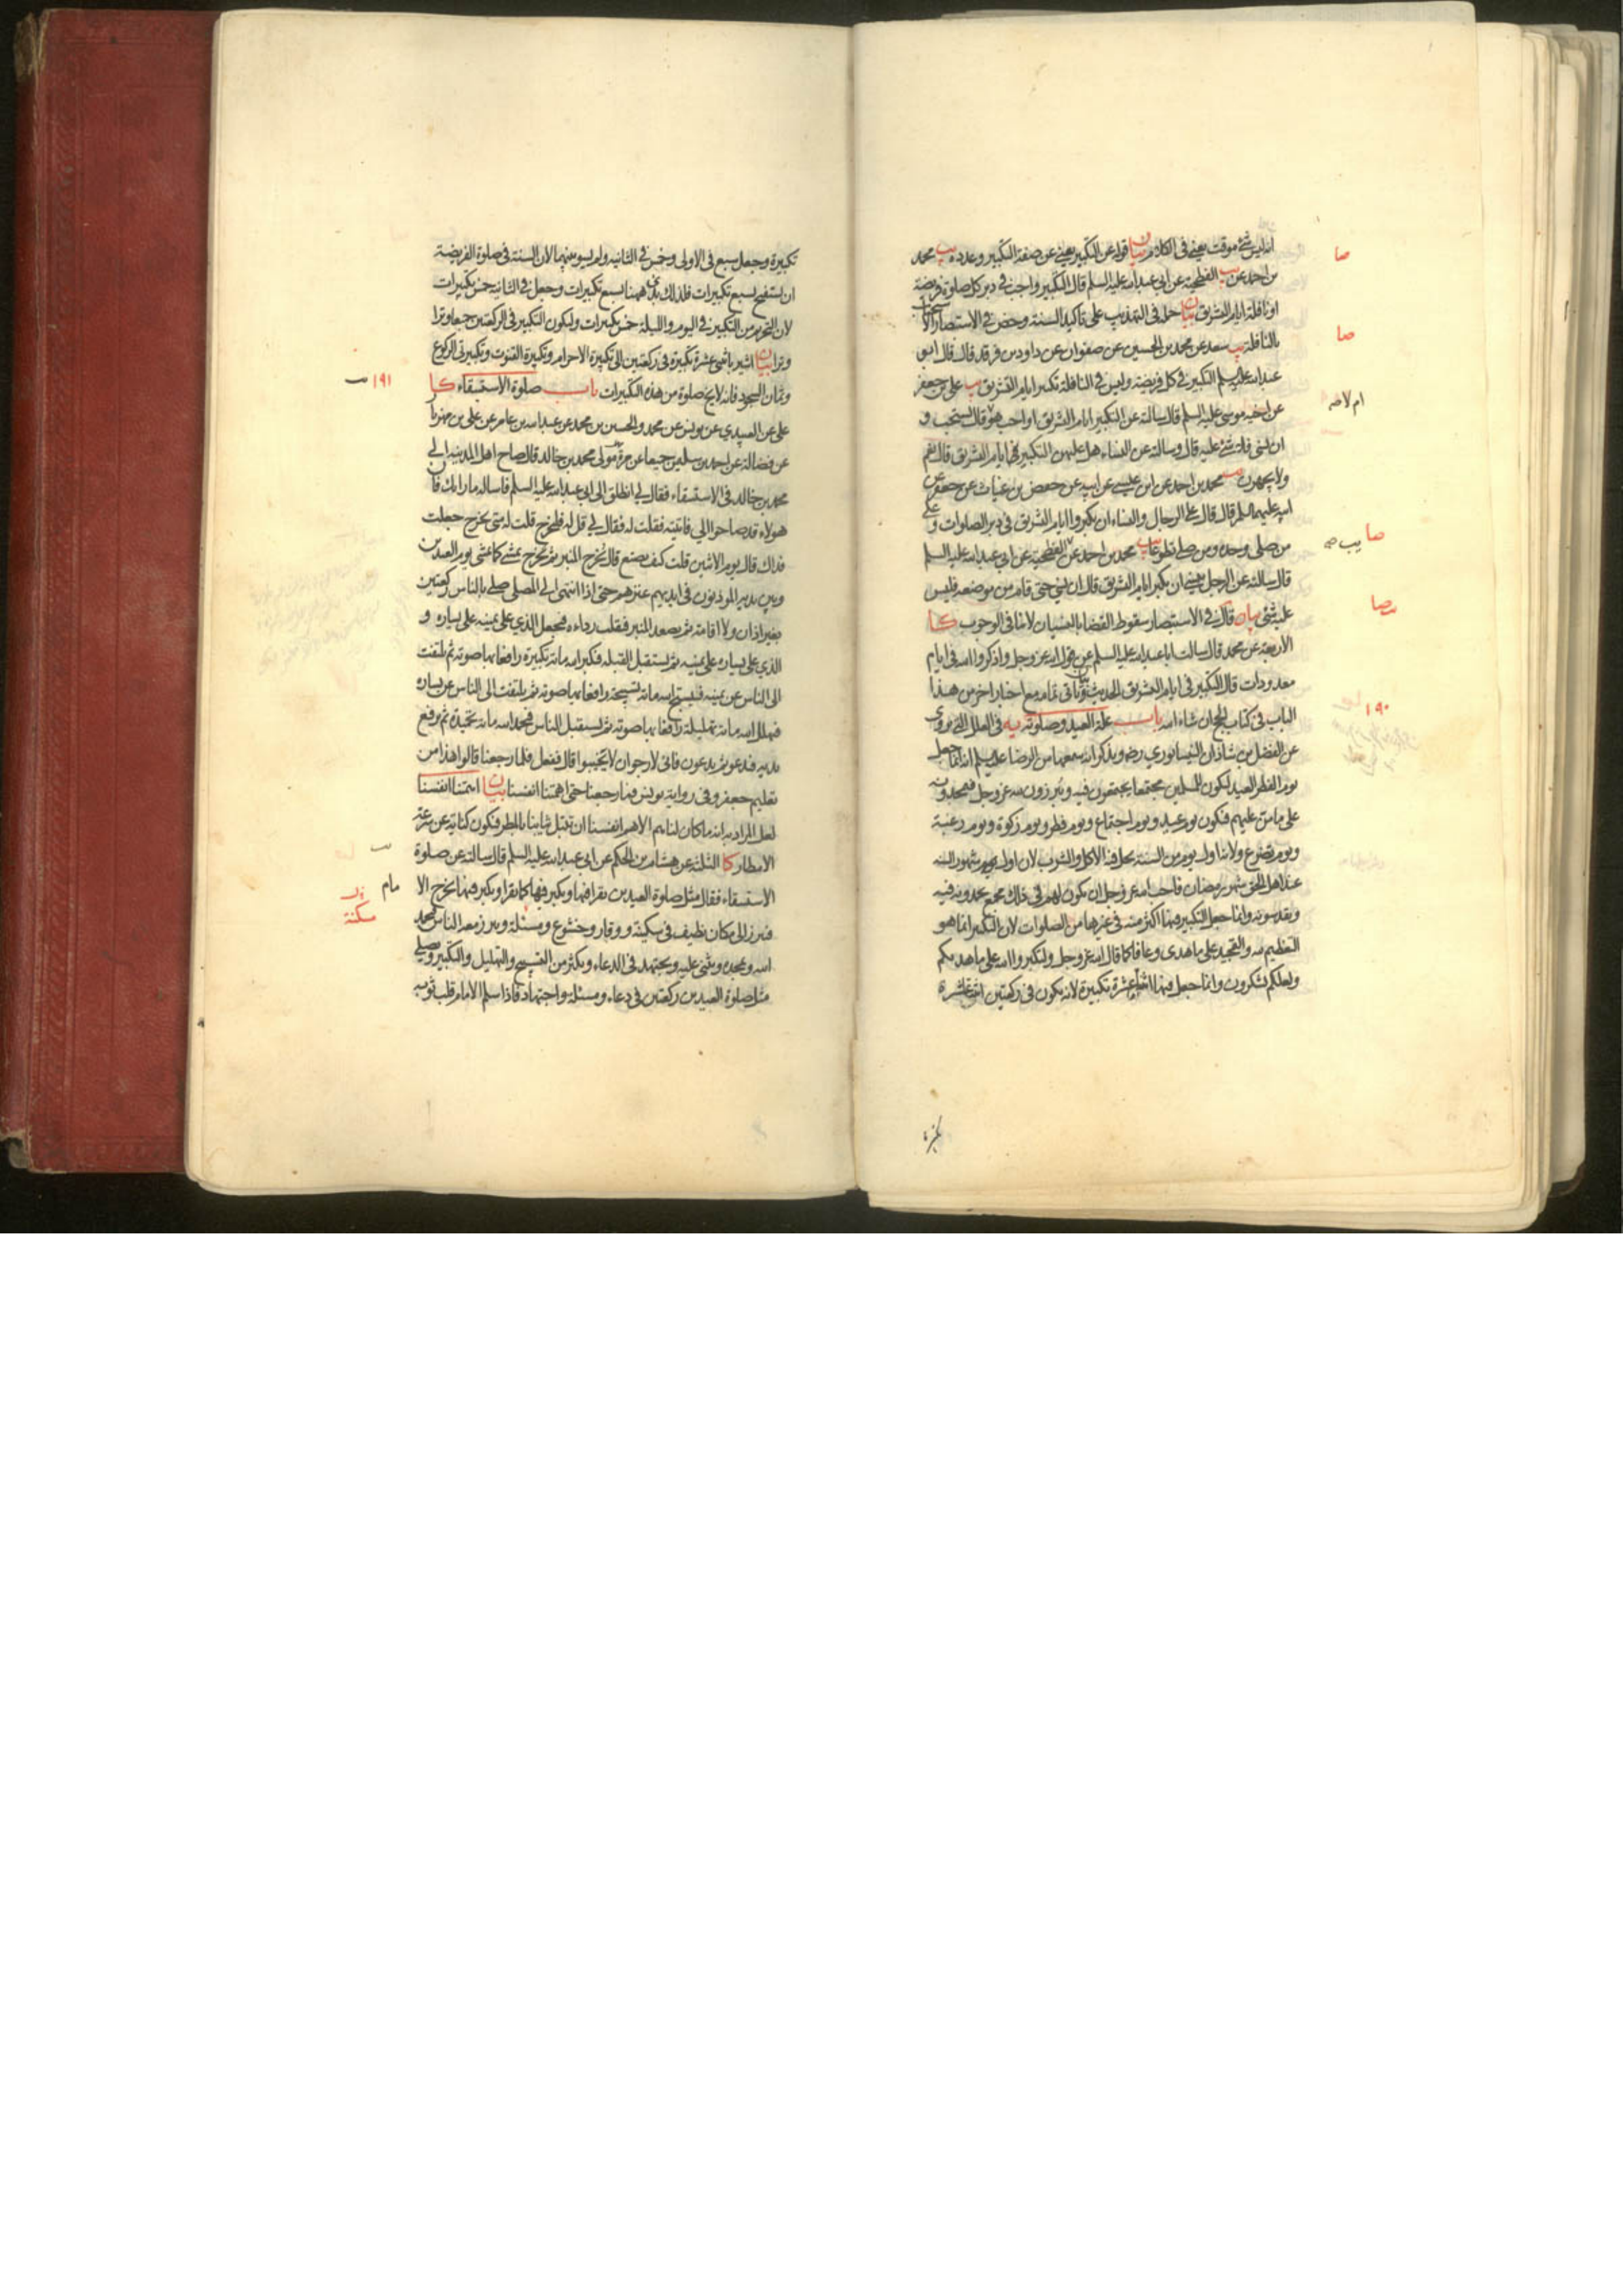 انه ليس شئ موقت يعني في الكلام بيان قوله عن التكبير يعني عن صفة التكبير وعدده يب محمد
بن احمد عن الفطحية عن ابي عبدالله عليه السلم قال التكبير واجب في دبر كل صلوة فريضة
او نافلة ايام التشريق بيان حمله في التهذيب على تاكيد السنة وخص في الاستبصار الاستحباب
بالنافلة يب سعد عن محمد بن الحسين عن صفوان عن داود بن فرقد قال قال ابو
عبدالله عليه السلم التكبير في كل فريضة وليس في النافلة تكبير ايام التشريق يب علي بن جعفر
عن اخيه موسى عليه السلم قال سالته عن التكبير ايام التشريق اواجب هو قال يستحب و
ان نسي فلا شئ عليه قال وسالته عن النساء هل عليهن التكبير ايام التشريق قال نعم
ولا يجهرن يب محمد بن احمد عن ابن عيسى عن ابيه عن حفص بن غياث عن جعفر عن
ابيه عليهما السلم قال قال علي الرجال والنساء ان يكبروا ايام التشريق في دبر الصلوات وعلى
من صلى وحده ومن صلى تطوعا يب محمد بن احمد عن الفطحية عن ابي عبدالله عليه السلم
قال سالته عن الرجل ينسى ان يكبر ايام التشريق قال ان نسي حتى قام من موضعه فليس
عليه شئ بيان قال في الاستبصار سقوط القضا بالنسيان لا ينافي الوجوب كا
الاربعة عن محمد قال سالت ابا عبدالله عليه السلم عن قول الله عز وجل واذكروا الله في ايام
معدودات قال التكبير في ايام التشريق الحديث بيان وياتي تمامه مع اخبار اخر من هذا
الباب في كتاب الحج ان شاء الله باب علة العيد وصلوته يه في العلل التي تروى
عن الفضل بن شاذان النيسابوري رضه ويذكر انه سمعها من الرضا عليه السلم انه انما جعل
يوم الفطر العيد ليكون للمسلمين مجتمعا يجتمعون فيه ويبرزون لله عز وجل فيحمدونه
على ما من عليهم فيكون يوم عيد ويوم اجتماع ويوم فطر ويوم زكوة ويوم رغبة
ويوم تضرع ولانه اول يوم من السنة يحل فيه الاكل والشرب لان اول شهور السنة
عند اهل الحق شهر رمضان فاحب الله عز وجل ان يكون لهم في ذلك مجمع يحمدونه فيه
ويقدسونه وانما جعل التكبير فيها اكثر منه في غيرها من الصلوات لان التكبير انما هو
التعظيم لله والتمجيد على ما هدى وعافا كما قال الله عز وجل ولتكبروا الله على ما هديكم
ولعلكم تشكرون وانما جعل فيها اثنتا عشرة تكبيرة لانه يكون في ركعتين اثنتا عشرة
تكبيرة
صا
صا
ام لا صه
صا يب صه
صا
١٩٠
تكبيرة وجعل سبع في الاولى وخمس في الثانيه ولم يسو بينهما لان السنة في صلوة الفريضة
ان تستفتح بسبع تكبيرات فلذلك بدئ ههنا بسبع تكبيرات وجعل في الثانيه خمس تكبيرات
لان التحريم من التكبير في اليوم والليلة خمس تكبيرات وليكون التكبير في الركعتين جميعا وترا
وترا بيان اشير باثنتي عشرة تكبيرة في ركعتين الى تكبيرة الاحرام وتكبيرة القنوت وتكبيرتي الركوع
وثمان السجود فانه لا يخ صلوة من هذه التكبيرات باب صلوة الاستسقاء كا
علي عن العبيدي عن يونس عن محمد والحسين بن محمد عن عبدالله بن عامر عن علي بن مهزيار
عن فضالة عن احمد بن سليمن جميعا عن مرة مولى محمد بن خالد قال صاح اهل المدينه الى
محمد بن خالد في الاستسقاء فقال لي انطلق الى ابي عبدالله عليه السلم فاساله ما رايك فان
هولاء قد صاحوا الي فاتيته فقلت له فقال لي قل له فليخرج قلت له متى يخرج جعلت
فداك قال يوم الاثنين قلت كيف يصنع قال يخرج المنبر ثم يخرج يمشي كما يمشي يوم العيدين
وبين يديه المؤذنون في ايديهم عنزهم حتى اذا انتهى الى المصلى صلى بالناس ركعتين
بغير اذان ولا اقامة ثم يصعد المنبر فيقلب رداءه فيجعل الذي على يمينه على يساره و
الذي على يساره على يمينه ثم يستقبل القبله فيكبر الله مائة تكبيرة رافعا بها صوته ثم يلتفت
الى الناس عن يمينه فيسبح الله مائة تسبيحة رافعا بها صوته ثم يلتفت الى الناس عن يساره
فيهلل الله مائة تهليلة رافعا بها صوته ثم يستقبل الناس فيحمد الله مائة تحميدة ثم يرفع
يديه فيدعو ثم يدعون فاني لارجو ان لا يخيبوا قال ففعل فلما رجعنا قالوا هذا من
تعليم جعفر وفي رواية يونس فما رجعنا حتى اهمتنا انفسنا بيان اهمتنا انفسنا
لعل المراد به انه ما كان لنا هم الا هم انفسنا ان تبتل ثيابنا بالمطر فتكون كناية عن سرعة
الامطار كا الثلثة عن هشام بن الحكم عن ابي عبدالله عليه السلم قال سالته عن صلوة
الاستسقاء فقال مثل صلوة العيدين يقرا فيها ويكبر فيها كما يقرا ويكبر فيها يخرج الا
مام
فيبرز الى مكان نظيف في سكينة ووقار وخشوع ومسئلة ويبرز معه الناس فيحمد
الله ويمجده ويثني عليه ويجتهد في الدعاء ويكثر من التسبيح والتهليل والتكبير ويصلي
مثل صلوة العيدين ركعتين في دعاء ومسئلة واجتهاد فاذا سلم الامام قلب ثوبه
١٩١
مسكنة